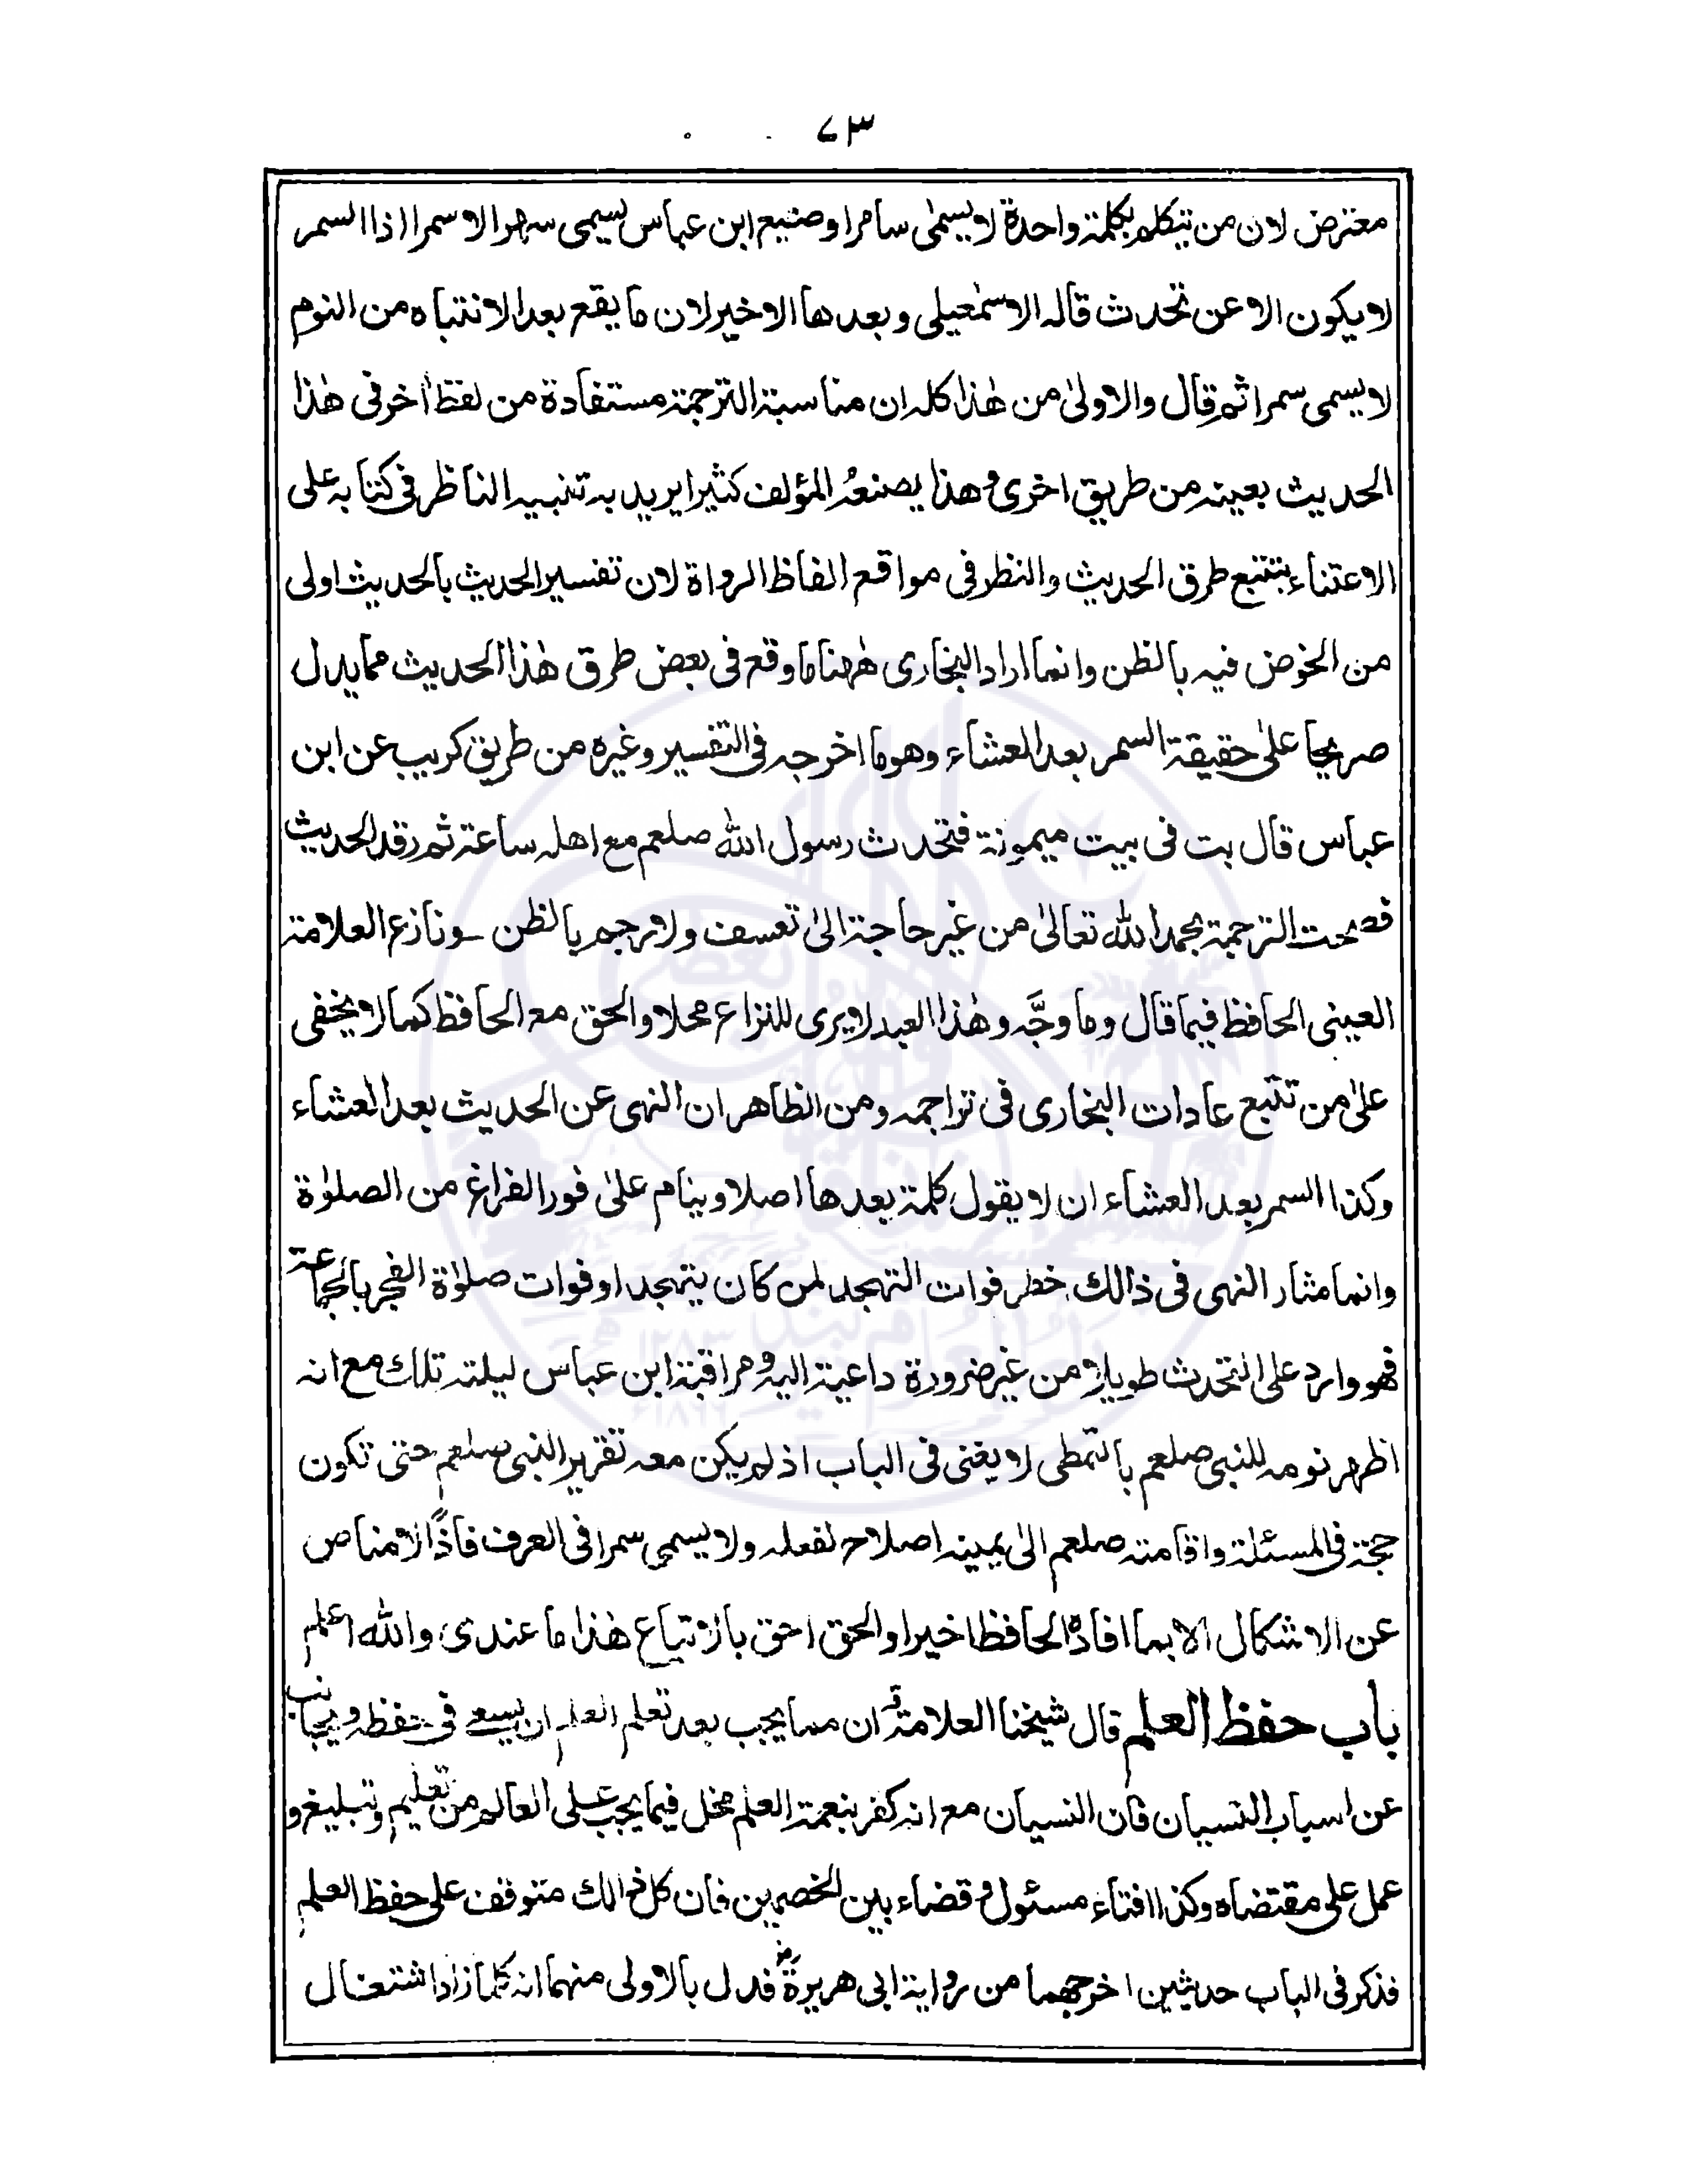 ٧٣
معترض لان من يتكلم بكلمة واحدة لا يسمىٰ سامرا وصنيع ابن عباس يسمى سهرا لا سمرا اذا السمر
لا يكون الا عن تحدث قاله الاسمٰعيلى وبعدها الاخير لان ما يقع بعد الانتباه من النوم
لا يسمى سمرا ثم قال والاولىٰ من هٰذا كله ان مناسبة الترجمة مستفادة من لفظ اٰخر فى هٰذا
الحديث بعينه من طريق اخرى وهذا يصنعهُ المؤلف كثيرا يريد به تنبيه الناظر فى كتابه على
الاعتناء بتتبع طرق الحديث والنظر فى مواقع الفاظ الرواة لان تفسير الحديث بالحديث اولى
من الخوض فيه بالظن وانما اراد البخارى هٰهنا ما وقع فى بعض طرق هٰذا الحديث مما يدل
صريحا علىٰ حقيقة السمر بعد العشاء وهو ما اخرجه فى التفسير وغيره من طريق كريب عن ابن
عباس قال بت فى بيت ميمونة فتحدث رسول الله صلعم مع اهله ساعة ثم رقد الحديث
فصحت الترجمة بحمد الله تعالىٰ من غير حاجة الىٰ تعسف ولا رجم بالظن ـ ونازع العلامة
العينى الحافظ فيما قال وما وجَّه وهٰذا العبد لا يرى للنزاع محلا والحق مع الحافظ كما لا يخفى
علىٰ من تتبع عادات البخارى فى تراجمه ومن الظاهر ان النهى عن الحديث بعد العشاء
وكذا السمر بعد العشاء ان لا يقول كلمة بعدها اصلا وينام علىٰ فور الفراغ من الصلوٰة
وانما مثار النهى فى ذٰالك خطر فوات التهجد لمن كان يتهجد او فوات صلوٰة الفجر بالجماعة
فهو وارد على التحدث طويلا من غير ضرورة داعية اليه ومراقبة ابن عباس ليلته تلك مع انه
اظهر نومه للنبى صلعم بالتمطى لا يغنى فى الباب اذ لم يكن معه تقرير النبى صلعم حتى تكون
حجة فى المسئلة واقامته صلعم الىٰ يمينه اصلاح لفعله ولا يسمى سمرا فى العرف فاذًا لا مناص
عن الاشكال الا بما افادهُ الحافظ اخيرا والحق احق بالاتباع هٰذا ما عندى والله اعلم
باب حفظ العلم قال شيخنا العلامةؒ ان مما يجب بعد تعلم العلم ان يسعے فى حفظه ويجانب
عن اسباب النسيان فان النسيان مع انه كفر بنعمة العلم مخل فيما يجب على العالم من تعليم وتبليغ و
عمل على مقتضاه وكذا افتاء مسئول وقضاء بين الخصمين فان كل ذالك متوقف على حفظ العلم
فذكر فى الباب حديثين اخرجهما من رواية ابى هريرةؓ فدل بالاولى منهما انه كلما زاد اشتغال